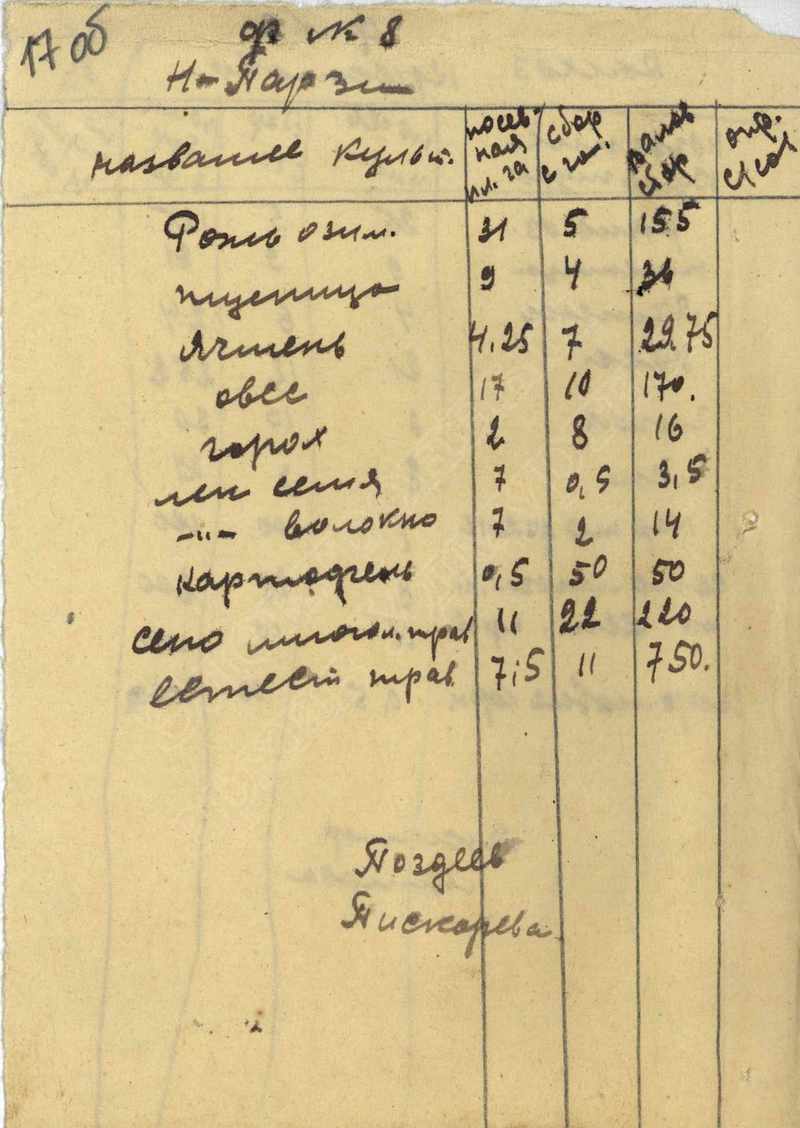 17 об
ф № 8
Н-Парзи
название культ. посевная пл. га сбор с га. валов сбор опр. с/сов
Рожь озим. 31 5 155
пшеница 9 4 36
ячмень 4,25 7 29.75
овес 17 10 170.
горох 2 8 16
лен семя 7 0,5 3,5
-"- волокно 7 2 14
картофель 0,5 50 50
сено многол. трав 11 22 220
естест трав 7,5 11 750.
Поздеев
Пискарева